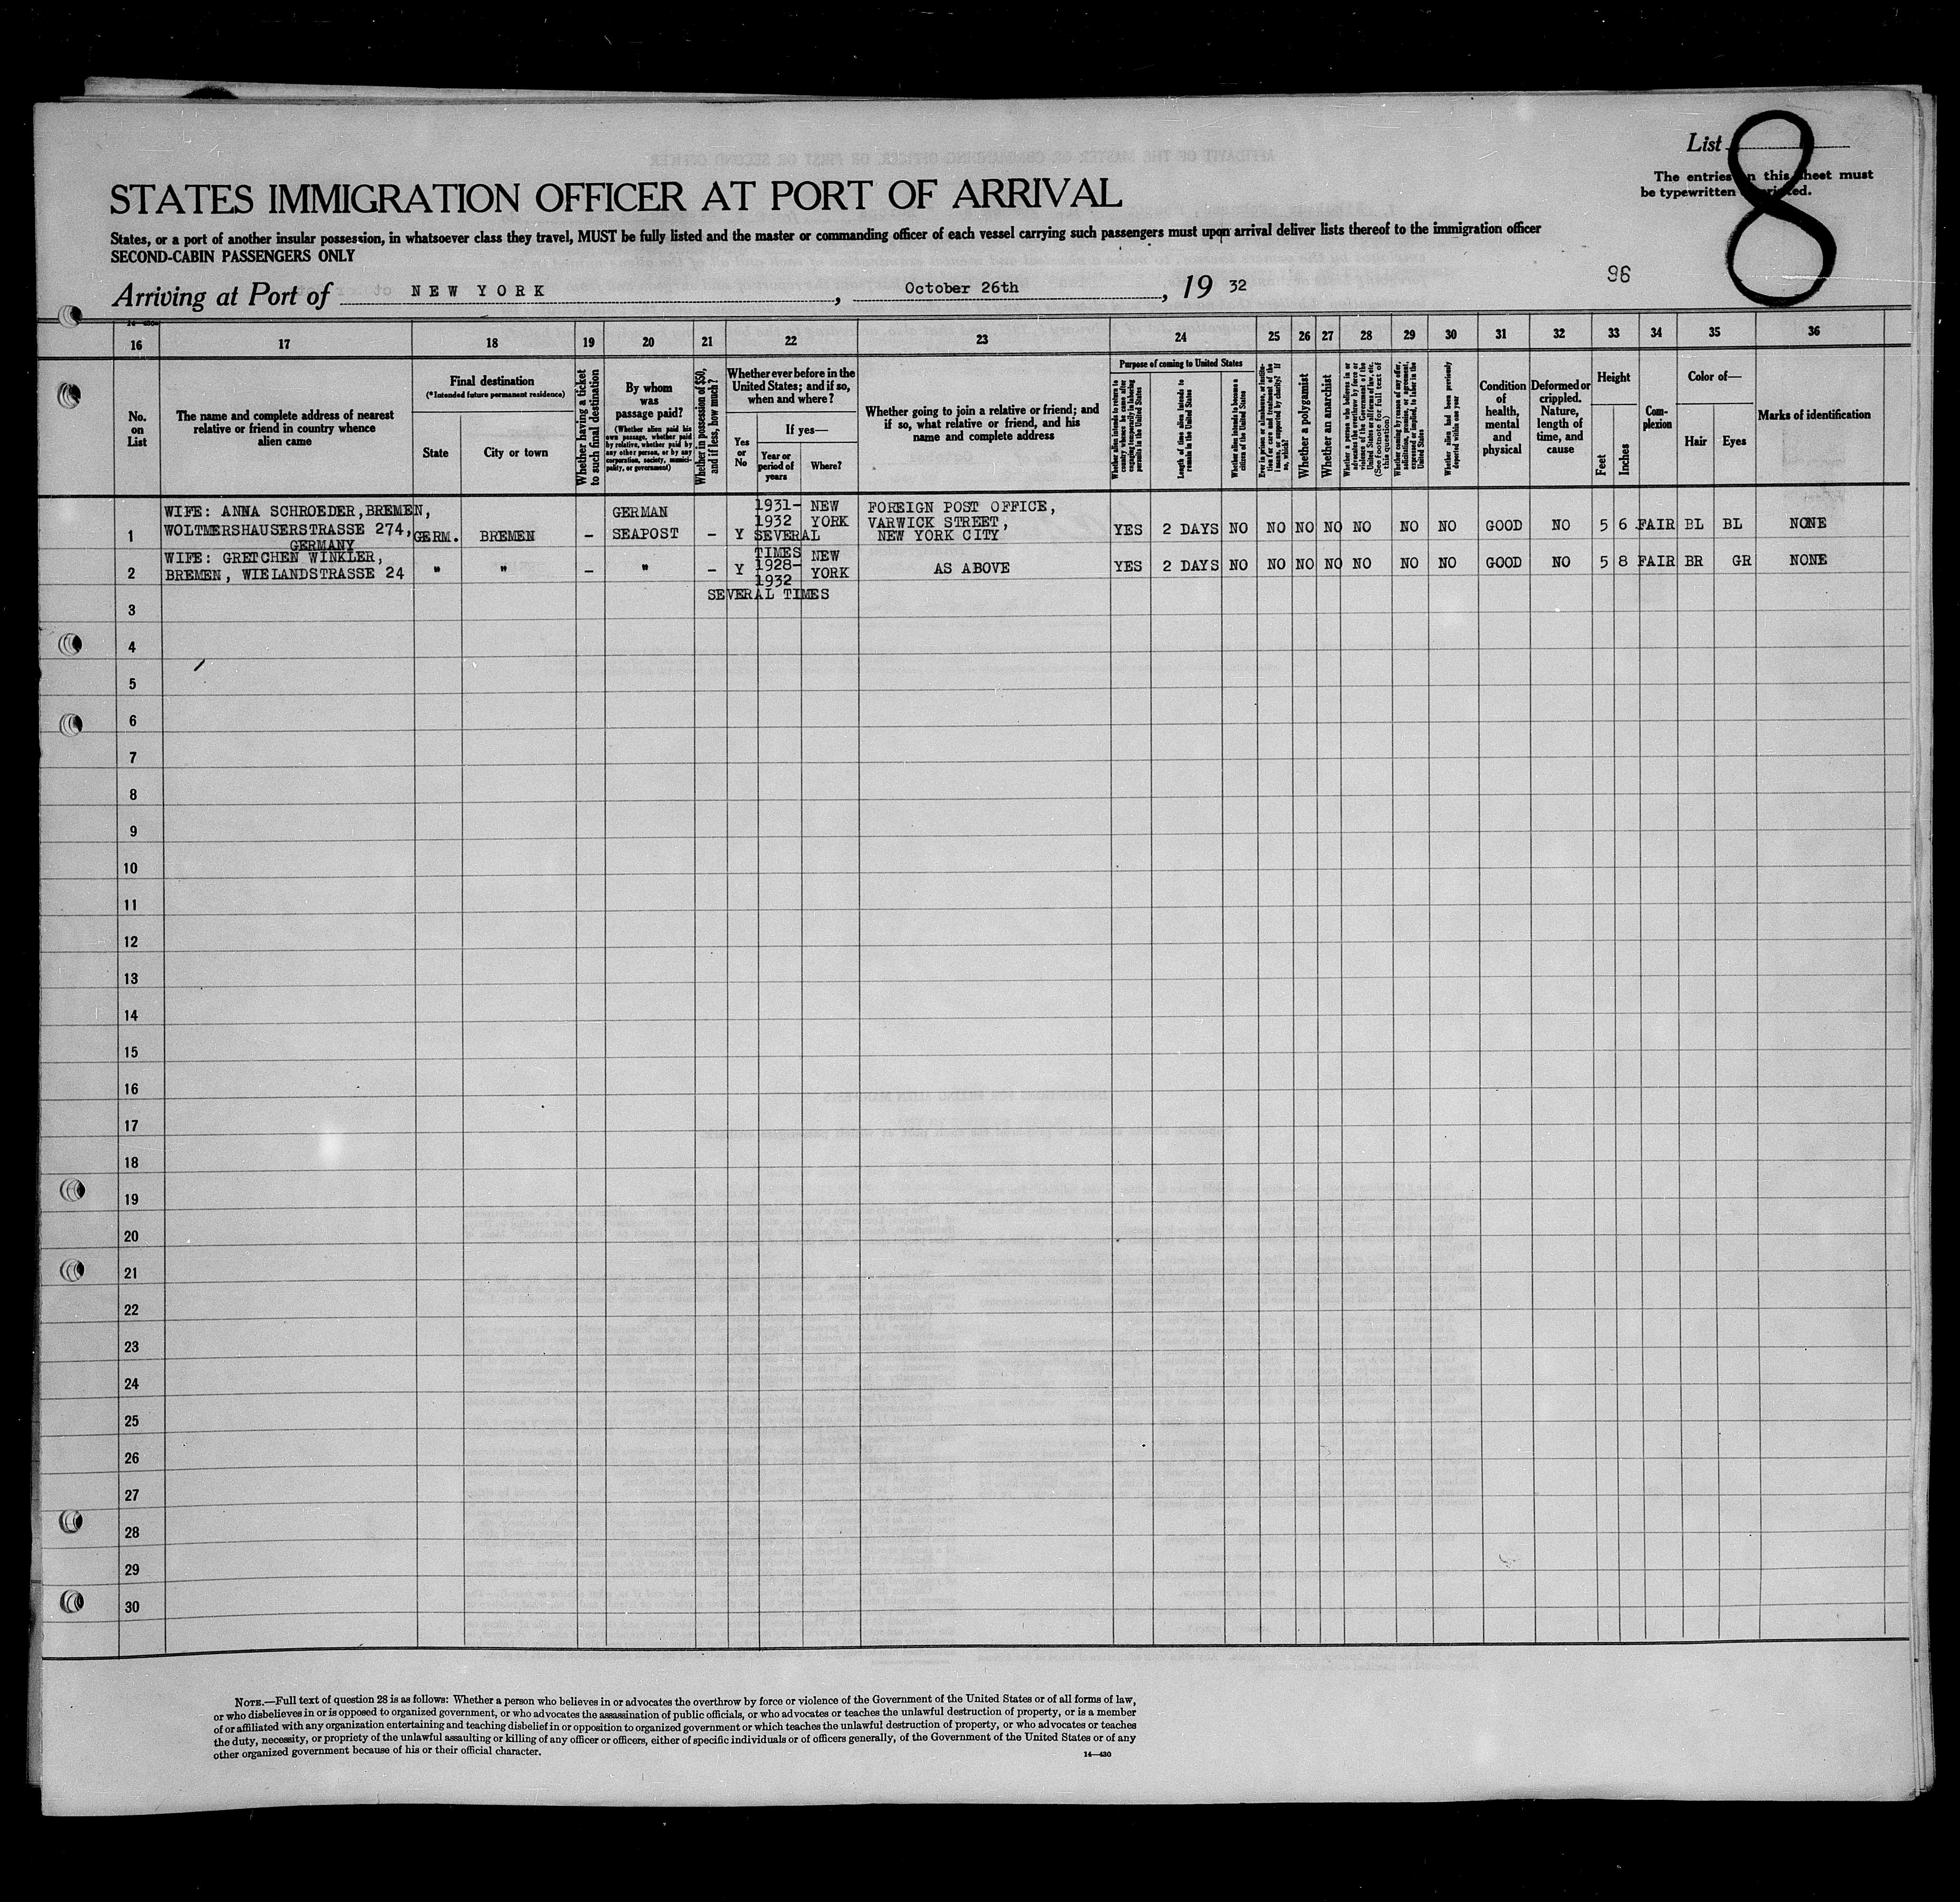 List 8
The entries on this sheet must
be typewritten or printed.
STATES IMMIGRATION OFFICER AT PORT OF ARRIVAL
States, or a port of another insular possession, in whatsoever class they travel, MUST be fully listed and the master or commanding officer of each vessel carrying such passengers must upon arrival deliver lists thereof to the immigration officer
SECOND-CABIN PASSENGERS ONLY
96
Arriving at Port of NEW YORK, October 26th, 19 32
16 17 18 19 20 21 22 23 24 25 26 27 28 29 30 31 32 33 34 35 36
No.
on
List
The name and complete address of nearest
relative or friend in country whence
alien came
Final destination
(*Intended future permanent residence)
State
City or town
Whether having a ticket
to such final destination
By whom
was
passage paid?
(Whether alien paid his
own passage, whether paid
by relative, whether paid by
any other person, or by any
corporation, society, munici-
pality, or government)
Whether in possession of $50,
and if less, how much?
Whether ever before in the
United States; and if so,
when and where?
Yes
or
No
If yes—
Year or
period of
years
Where?
Whether going to join a relative or friend; and
if so, what relative or friend, and his
name and complete address
Purpose of coming to United States
Whether alien intends to return to
country whence he came after
engaging temporarily in laboring
pursuits in the United States
Length of time alien intends to
remain in the United States
Whether alien intends to become a
citizen of the United States
Ever in prison or almshouse, or institu-
tion for care and treatment of the
insane, or supported by charity? If
so, which?
Whether a polygamist
Whether an anarchist
Whether a person who believes in or
advocates the overthrow by force or
violence of the Government of the
United States or all forms of law, etc.
(See footnote for full text of
this question)
Whether coming by reason of any offer,
solicitation, promise, or agreement,
expressed or implied, to labor in the
United States
Whether alien had been previously
deported within one year
Condition
of
health,
mental
and
physical
Deformed or
crippled.
Nature,
length of
time, and
cause
Height
Feet
Inches
Com-
plexion
Color of—
Hair
Eyes
Marks of identification
1 WIFE: ANNA SCHROEDER, BREMEN,
WOLTMERSHAUSERSTRASSE 274,
GERMANY
GERM. BREMEN –
GERMAN
SEAPOST
– Y
1931-
1932
SEVERAL
TIMES
NEW
YORK
FOREIGN POST OFFICE,
VARWICK STREET,
NEW YORK CITY
YES 2 DAYS NO NO NO NO NO NO NO GOOD NO 5 6 FAIR BL BL NONE
2 WIFE: GRETCHEN WINKLER,
BREMEN, WIELANDSTRASSE 24
" " – " – Y
1928-
1932
SEVERAL TIMES
NEW
YORK
AS ABOVE
YES 2 DAYS NO NO NO NO NO NO NO GOOD NO 5 8 FAIR BR GR NONE
3
4
5
6
7
8
9
10
11
12
13
14
15
16
17
18
19
20
21
22
23
24
25
26
27
28
29
30
NOTE.—Full text of question 28 is as follows: Whether a person who believes in or advocates the overthrow by force or violence of the Government of the United States or of all forms of law,
or who disbelieves in or is opposed to organized government, or who advocates the assassination of public officials, or who advocates or teaches the unlawful destruction of property, or is a member
of or affiliated with any organization entertaining and teaching disbelief in or opposition to organized government or which teaches the unlawful destruction of property, or who advocates or teaches
the duty, necessity, or propriety of the unlawful assaulting or killing of any officer or officers, either of specific individuals or of officers generally, of the Government of the United States or of any
other organized government because of his or their official character.
14—430